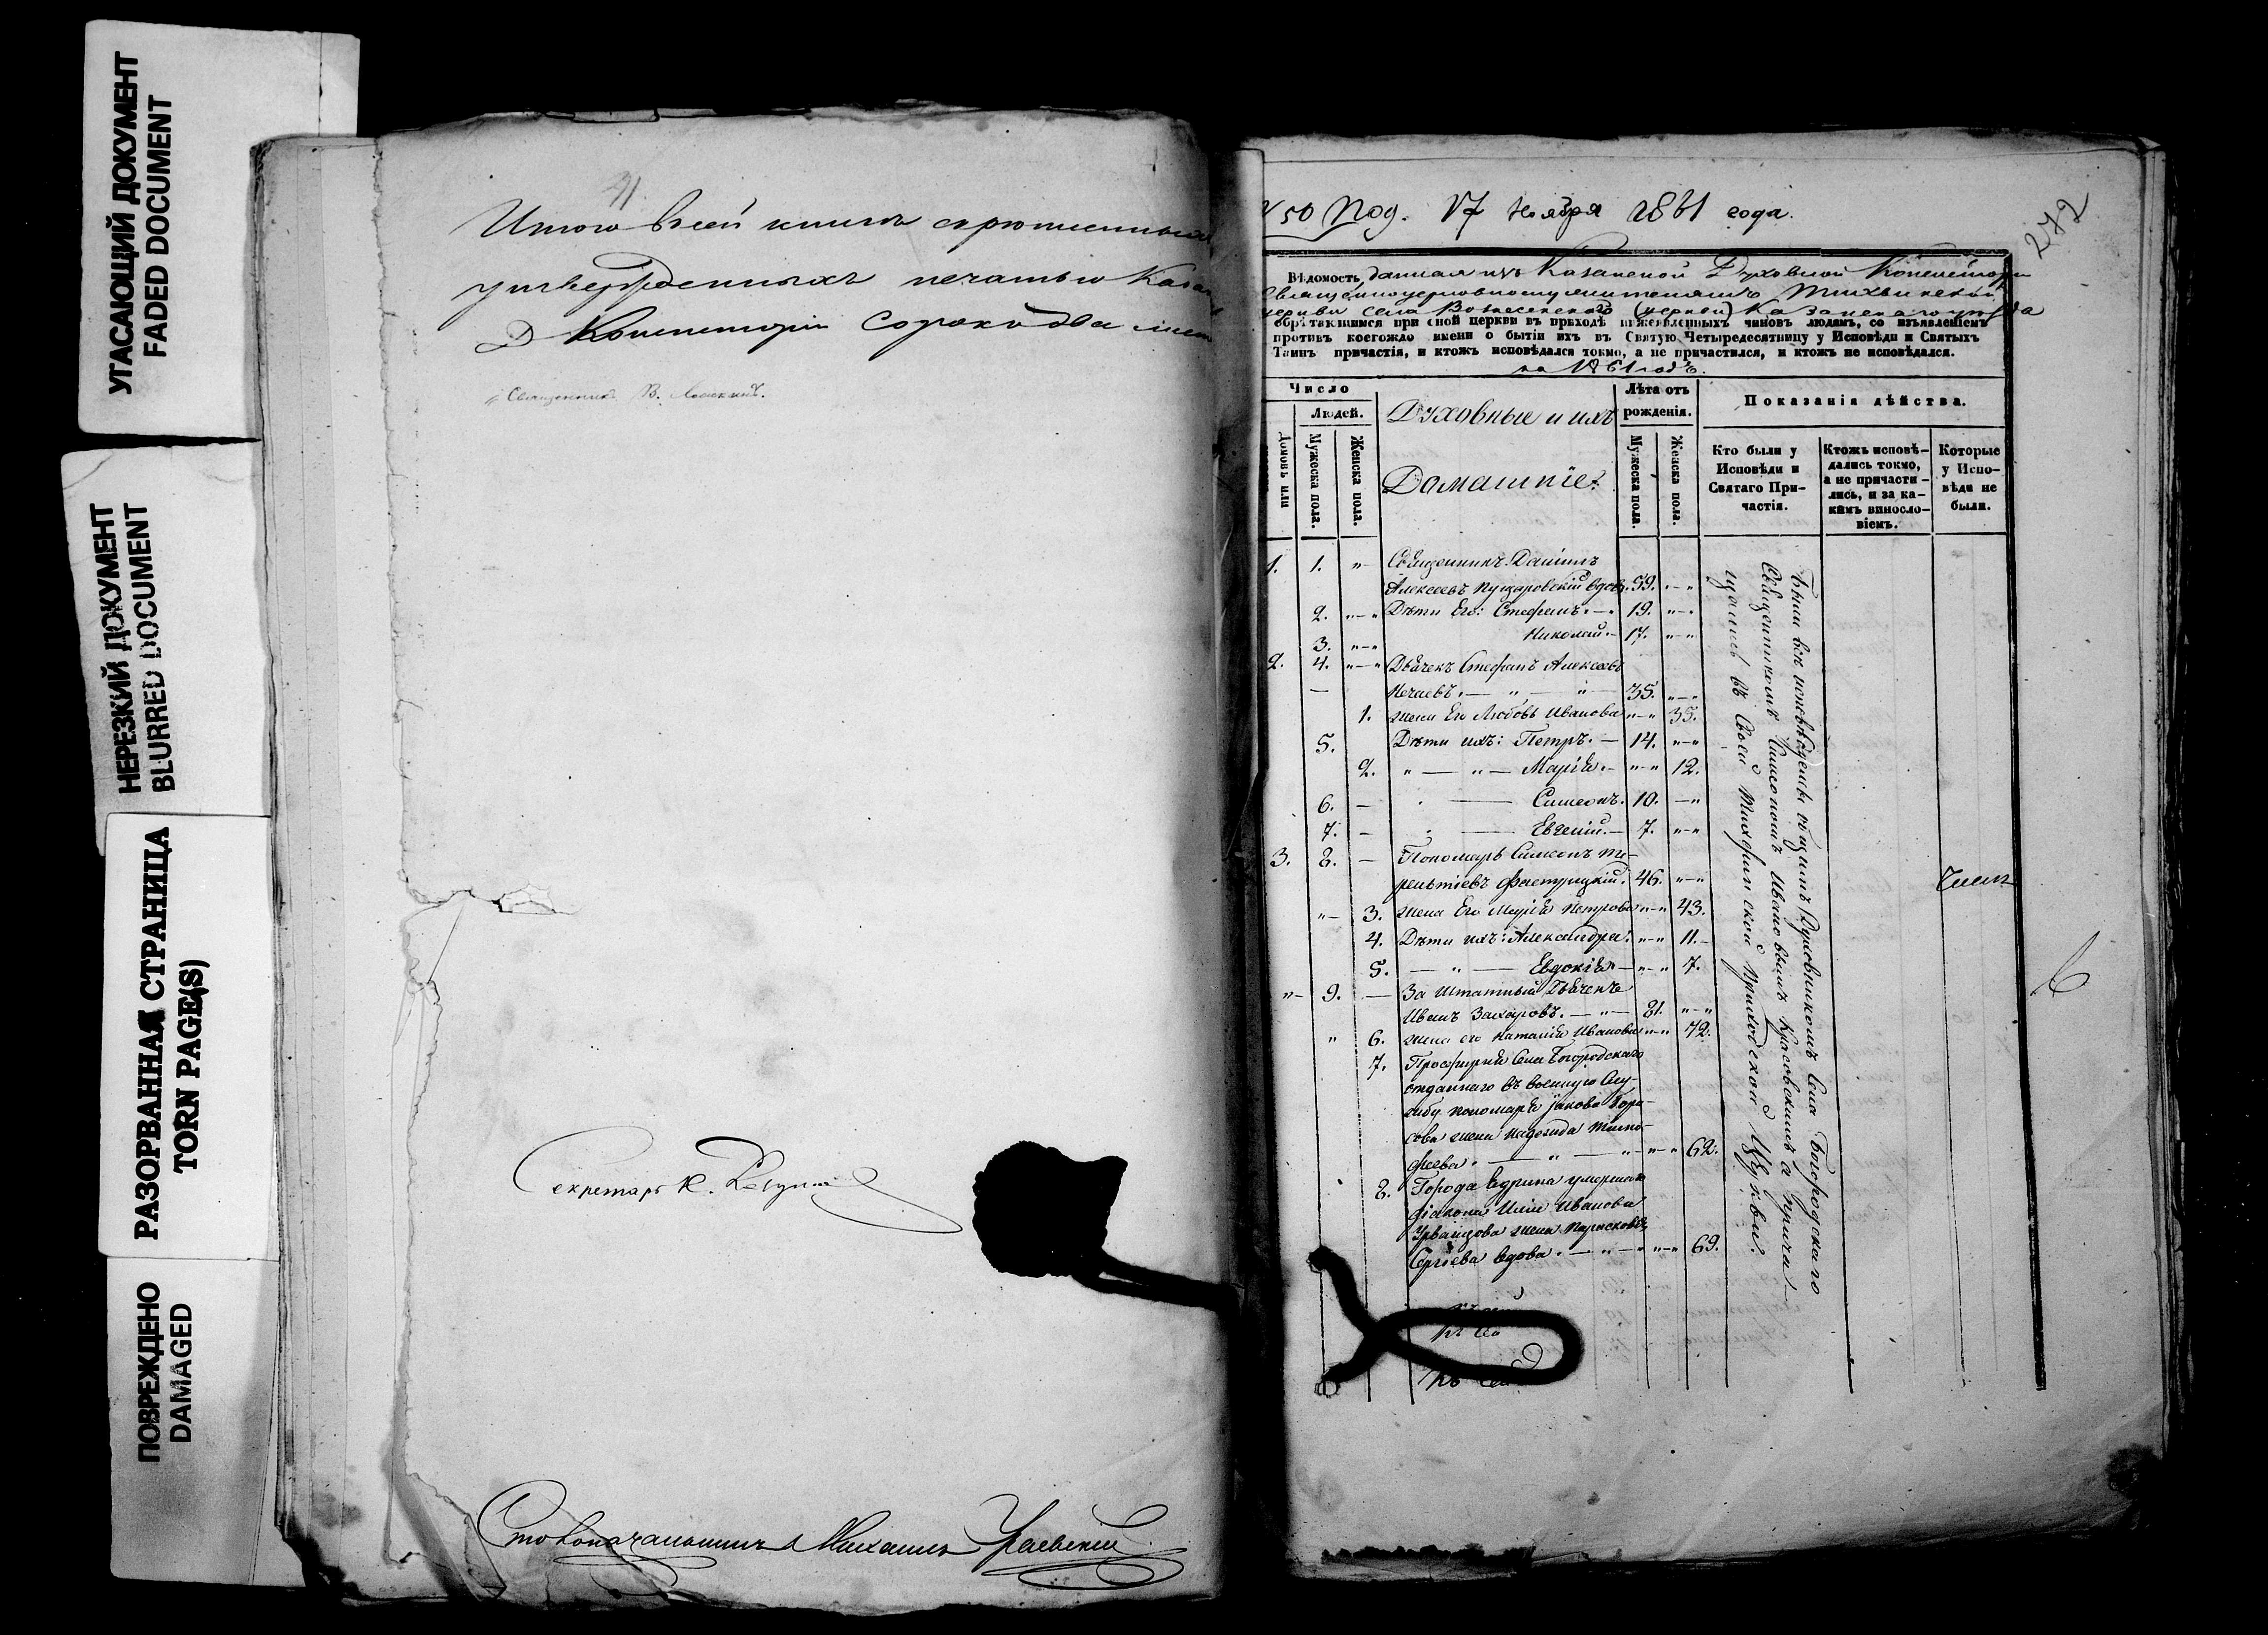 УГАСАЮЩИЙ ДОКУМЕНТ
FADED DOCUMENT
НЕРЕЗКИЙ ДОКУМЕНТ
BLURRED DOCUMENT
РАЗОРВАННАЯ СТРАНИЦА
TORN PAGE(S)
ПОВРЕЖДЕНО
DAMAGED
Итого всей книги скрепленныхъ
утвержденныхъ печатью
Д Консисторіи сорокъ два
Священникъ В.
Секретарь К.
Столоначальникъ Михаилъ
№ 50 Под. 17 ноября 1861 года.
272
Вѣдомость данная изъ Казанской Духовной Консисторіи
Священноцерковнослужителямъ Тихвинской
церкви села Вознесенскаго (церкви) Казанскаго уѣзда
обрѣтающимся при сной церкви въ приходѣ нижеявленныхъ чиновъ людямъ, со изъявленіемъ
противъ коегождо имени о бытіи ихъ въ Святую Четыредесятницу у Исповѣди и Святыхъ
Таинъ причастія, и ктожъ исповѣдался токмо, а не причастился, и ктожъ не исповѣдался.
на 1861 годъ.
Число
Людей.
Домовъ или
Мужеска пола.
Женска пола.
Духовные и ихъ
Домашніе.
Лѣта отъ
рожденія.
Мужеска пола.
Женска пола.
Показанія дѣйства.
Кто были у
Исповѣди и
Святаго При-
частія.
Ктожъ исповѣ-
дались токмо,
а не причасти-
лись, и за ка-
кимъ винosло-
віемъ.
Которые
у Испо-
вѣди не
были.
1. 1. " Священникъ Даніилъ
Алексѣевъ Пундровскій вдов. 59. "-"
2. "-" Дѣти Его: Стефанъ. — 19. "-"
3. "-" Николай. — 17. "-"
2. 4. "-" Дьячекъ Стефанъ Алексѣевъ
Нечаевъ. — " — " 35. "-"
1. жена Его Любовь Иванова "-" 35.
5. Дѣти ихъ: Петръ. — 14. "-"
2. " — " — Марія. — "-" 12.
6. — Симеонъ. 10. -"
7. — Евгеній. — 7. "-"
3. 8. — Пономарь Симеонъ Те-
рентіевъ Фастрицкій. 46. "-"
"- 3. жена Его Марія Петрова "-" 43.
4. Дѣти ихъ: Александра. "-" 11.
5. — " — Евдокія — "-" 7.
"- 9. — За Штатный Дьячекъ
Иванъ Захаровъ. — "— 81. "-"
" 6. жена его Наталія Иванова "-" 72.
7. Просфирня Села Богородскаго
отданнаго въ военную Слу-
жбу пономаря Іакова Бори-
сова жена Надежда Тимо-
феева. — " — " "-" 62.
8. Города Ядрина умершаго
діакона Иліи Иванова
Урванцова жена Параскева
Сергіева вдова. — " — "-" 69.
Были всѣ исповѣданы общимъ Духовникомъ Села Богородскаго
Священникомъ Симеономъ Ивановымъ Красовскимъ а прича-
щались въ своей Тихвинской приходской Церкви.